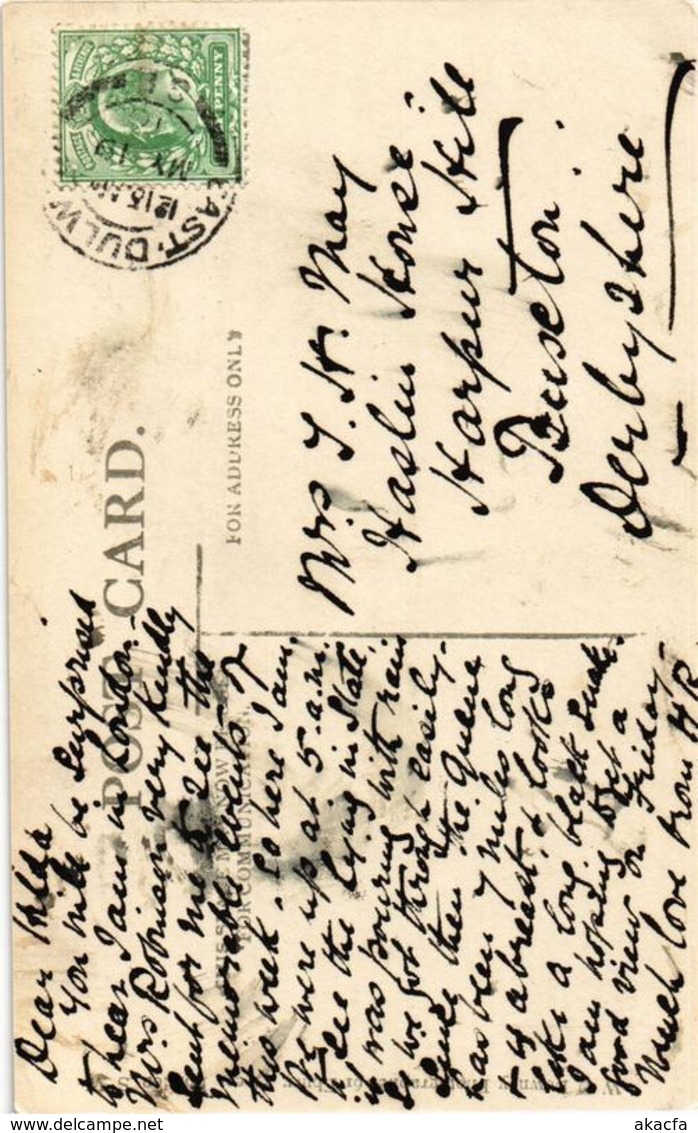 POST CARD.
FOR ADDRESS ONLY
FOR COMMUNICATION
PENNY
EAST DULW
12 15
MY 19
10
S.E.
Dear Hilda
You will be surprised
to hear I am in London.-
Mrs Robinson very kindly
sent for me to see the
memorable events of
this week. So here I am.
We were up at 5 a.m.
to see the lying in State,
it was pouring with rain
so we got through easily-
Since then the Queue
has been 7 miles long
& looks
like a long black
I am hoping to get a
good view on Friday-
Much love from
Mrs. T. H. May
Haslin House
Harpur Hill
Buxton.
Derbyshire
akacfa